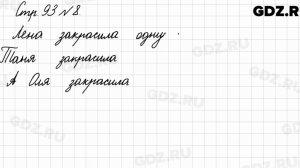 Стр. 93 № 8
GDZ.R
Лена закрасила одну
Таня закрасила
А Оля закрасила